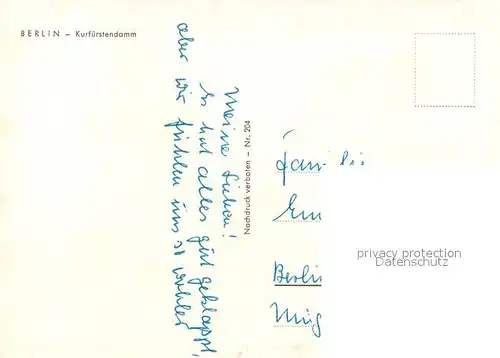 BERLIN – Kurfürstendamm
Meine Lieben!
Es hat alles gut geklappt,
aber wir fühlen uns so wohler
Nachdruck verboten – Nr. 204
Fami li
Em
Berlin
privacy protection
Datenschutz